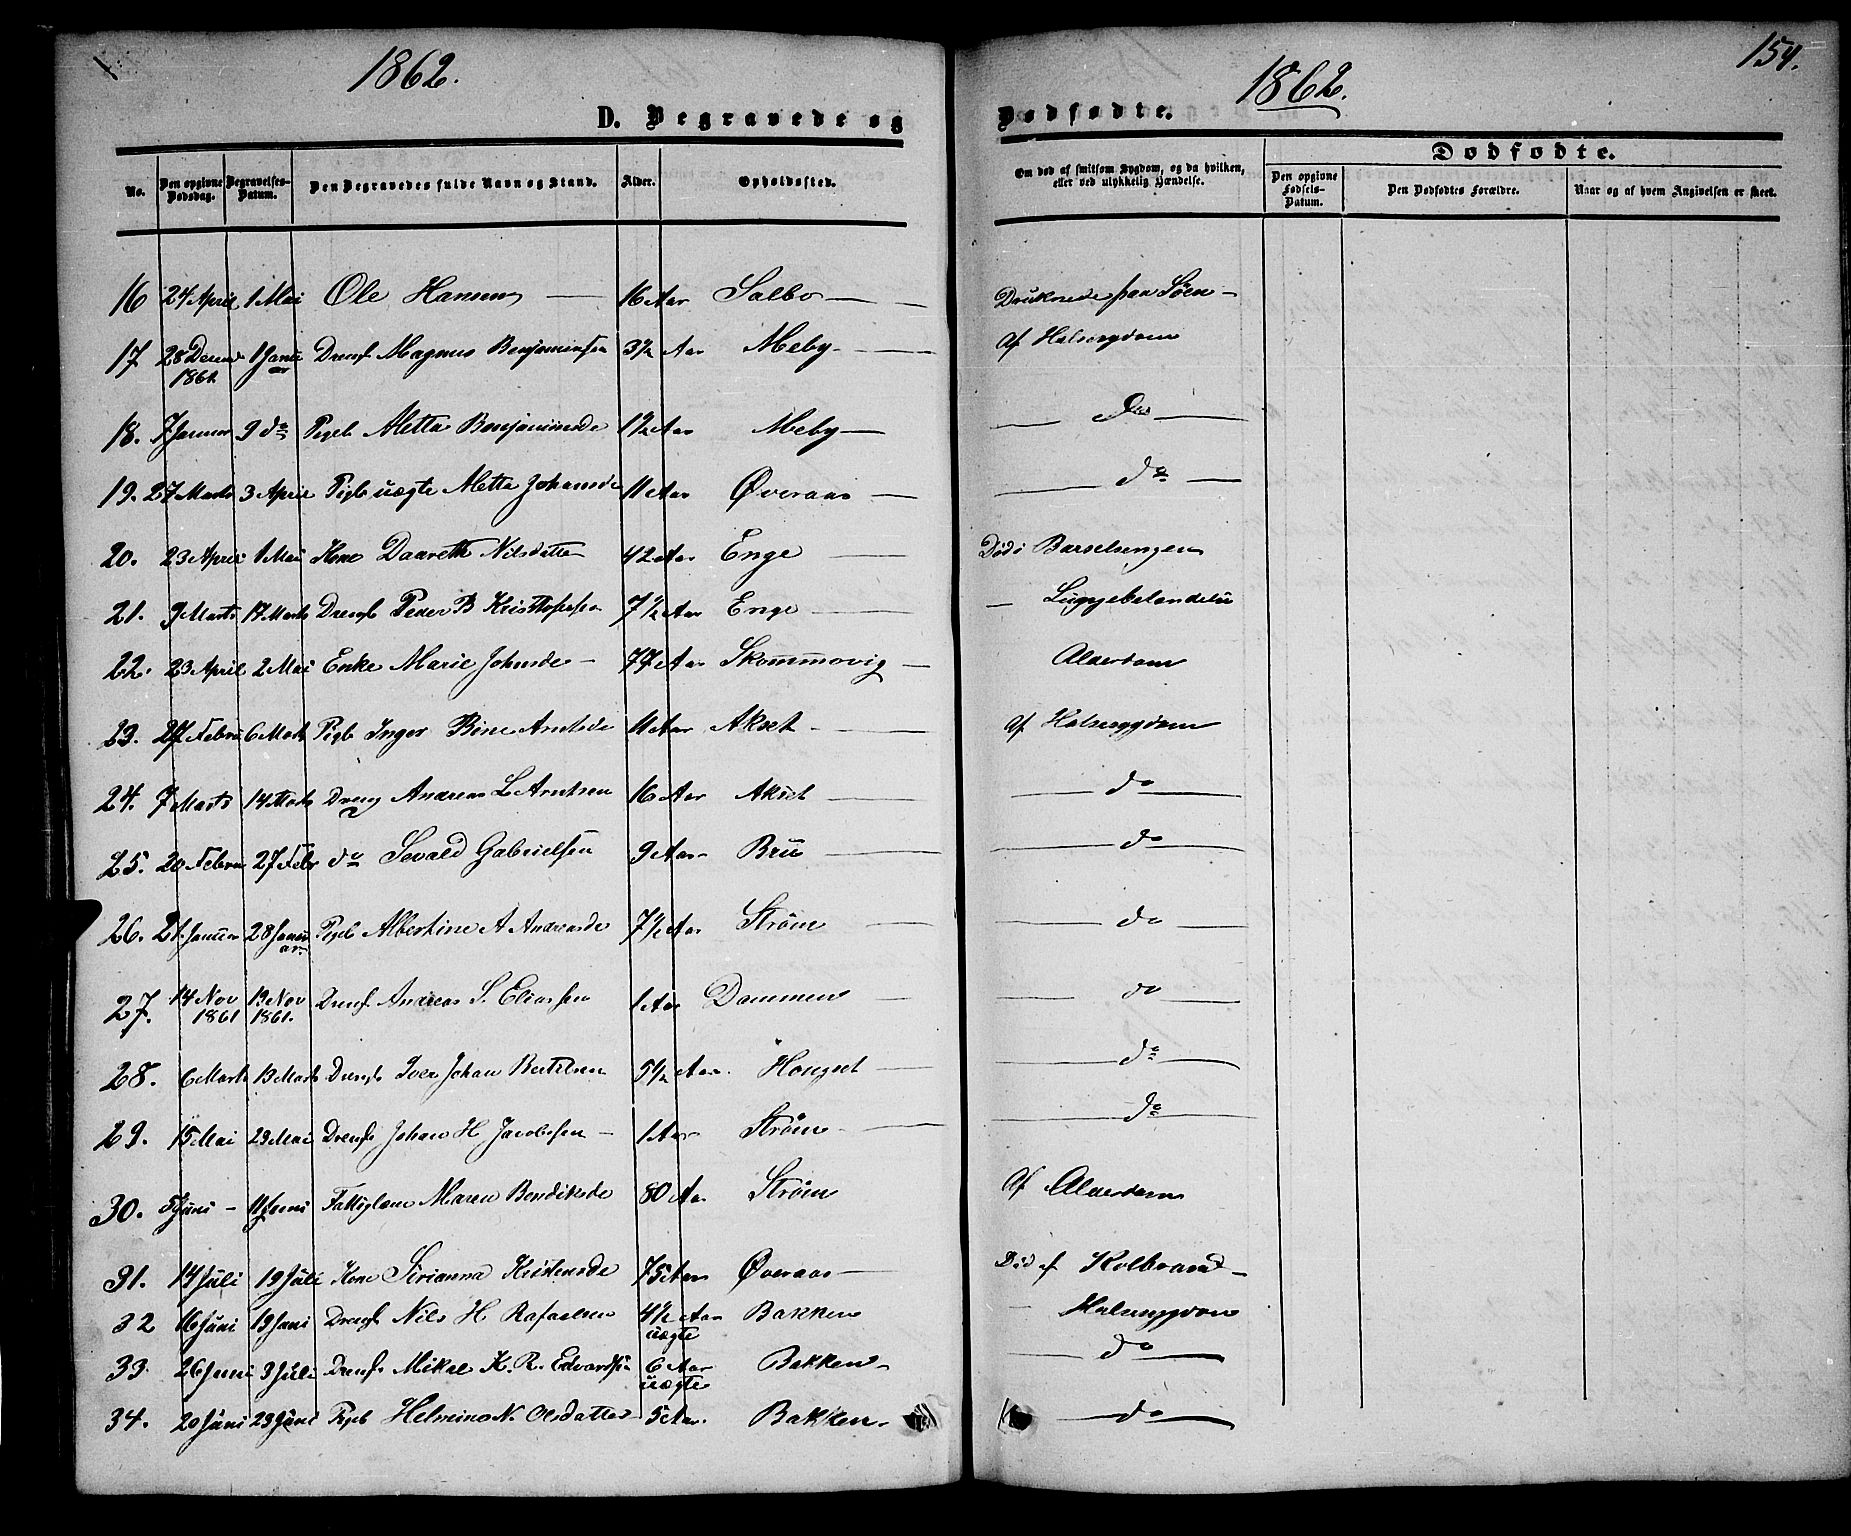 1862.
1862.
154.
D. Begravede og
Dødfødte.
No.
Den opgivne Dødsdag.
Begravelses-Datum.
Den Begravedes fulde Navn og Stand.
Alder.
Opholdssted.
Om død af smitsom Sygdom, og da hvilken, eller ved ulykkelig Hændelse.
Dødfødte.
Den opgivne Fødsels-Datum.
Den Dødfødtes Forældre.
Naar og af hvem Angivelsen er skeet.
16 24 April 1 Mai Ole Hansen — 16 Aar Salbo — Druknede paa Søen —
17 28 Decem 1861. 1 Janu ar Dreng Magnus Benjaminsen 3½ Aar Meby — Af Halssygdom
18. 7 Januar 9 do Pigeb Metta Benjaminsde 1½ Aar Meby — do —
19. 27 Marts 3 April Pigb uægte Metta Johansde 11 Aar Øveraas — do —
20. 23 April 1 Mai Kone Daareth Nilsdatte 42 Aar Enge — Død i Barselsengen
21. 9 Marts 17 Marts Drengb Peder B Kristofersen 7½ Aar Enge —
22. 23 April 2 Mai Enke Marie Johnsde — 77 Aar Skommovig — Alderdom
23. 27 Febru 6 Marts Pigb Inger Bine Arntsde 11 Aar Akset — Af Halssygdom
24. 7 Marts 14 Marts Dreng Andreas L Arntsen 16 Aar Akset — do —
25. 20 Februa 27 Febr do Sevald Gabrielsen 9 Aar Brü — do —
26. 21 Januar 28 Janu ar Pigeb Albertine A Andreasde 7½ Aar Strøm — do —
27. 14 Nov 1861 19 Nov 1861. Drengb Andreas S. Eliassen 1 Aar Dammen — do —
28. 6 Marts 13 Marts Drengb Iver Johan Bertelsen 5½ Aar Hongset — do —
29. 15 Mai 23 Mai Drengb Johan H Jacobsen — 1 Aar Strøm — do —
30. 5 Juni — 11 Juni Fattiglem Maren Bendiksde 80 Aar Strøm Af Alderdom
31. 14 Juli 19 Juli Kone Sirianna Kristensde 75 Aar Øveraas — Død af Kolbrand —
32 16 Juni 19 Juni Drengb Nils H Rafaelsen 4½ Aar uægte Bakken — Halssygdom
33. 26 Juni 3 Juli Drengb Mikal K. R. Edvardsen 6 Aar uægte Bakken — do —
34. 20 Juni 23 Juni Pigeb Helmine N. Olsdatter 5 Aar. Bakken — do —